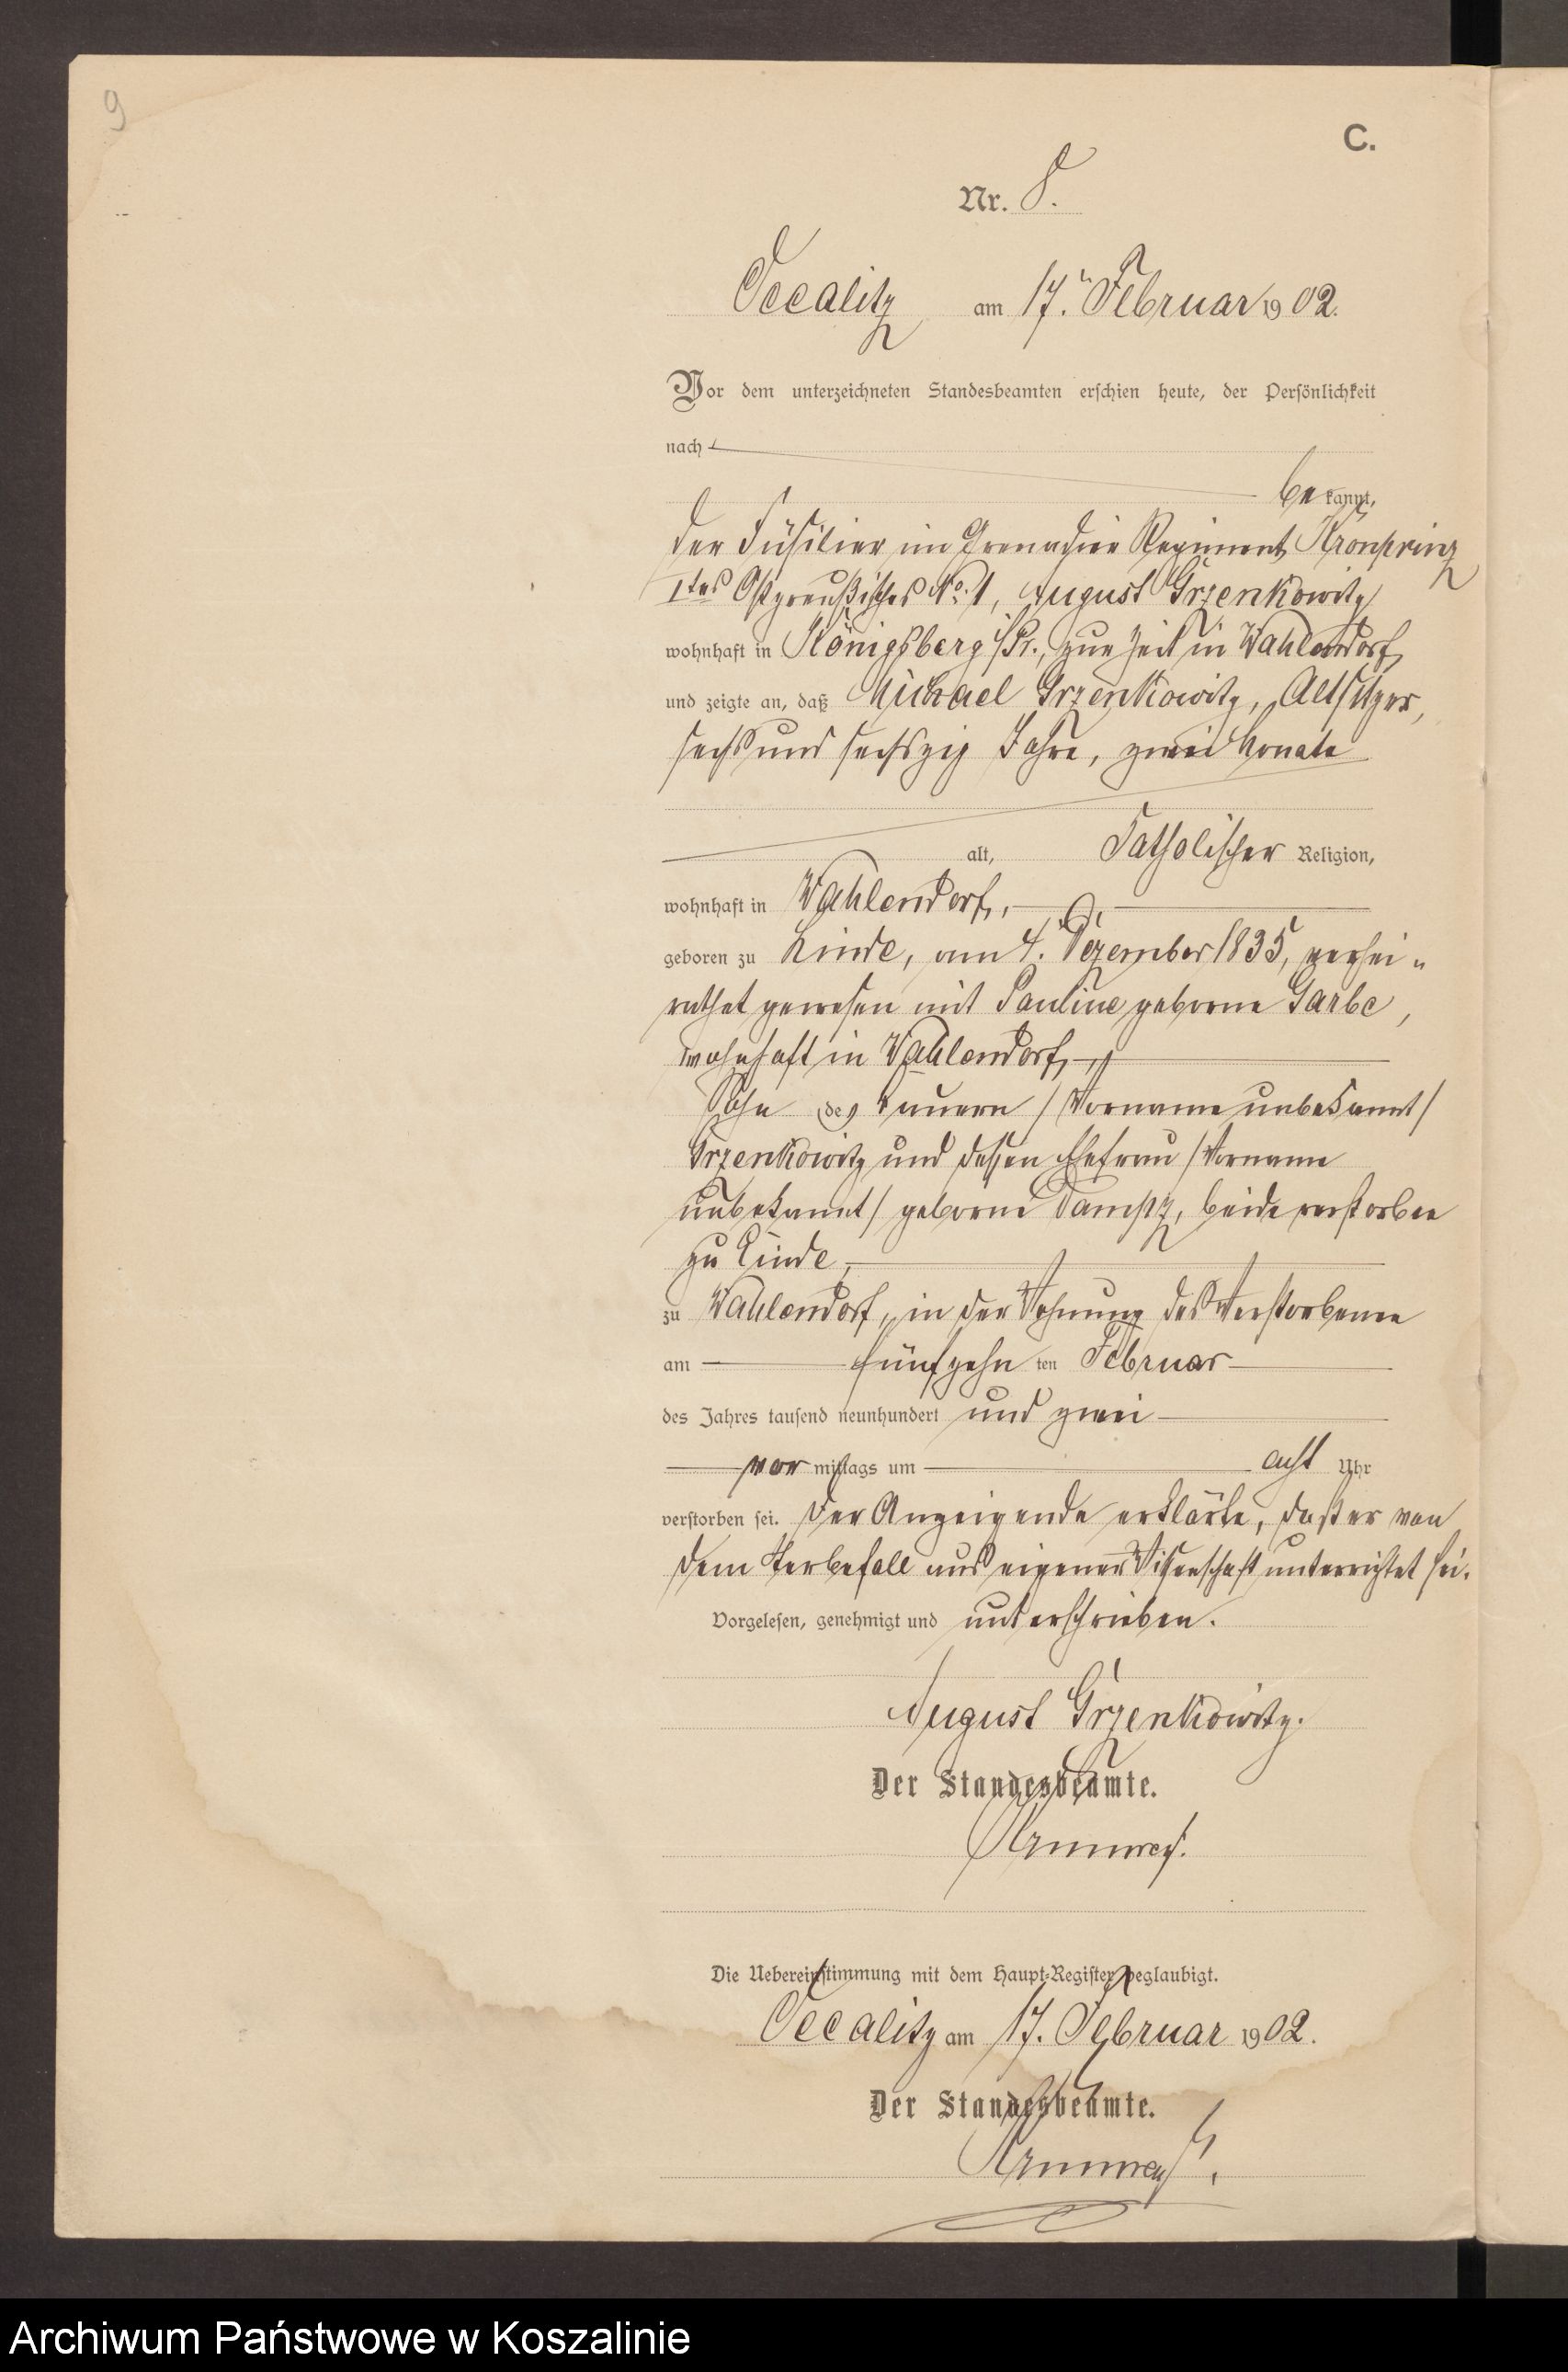 9
C.
Nr. 8.
Occalitz am 17. Februar 1902.
Vor dem unterzeichneten Standesbeamten erschien heute, der Persönlichkeit
nach
bekannt,
der Füsilier im Grenadier Regiment Kronprinz
1tes Ostpreußisches No. 1, August Grzenkowitz
wohnhaft in Königsberg i/Pr., zur Zeit in Wahlendorf,
und zeigte an, daß Michael Grzenkowitz, Altsitzer,
sechs und sechszig Jahre, zwei Monate
alt, katholischer Religion,
wohnhaft in Wahlendorf,
geboren zu Linde, am 4. Dezember 1835, verhei-
rathet gewesen mit Pauline geborne Garbe,
wohnhaft in Wahlendorf,
Sohn des Bauern /Vorname unbekannt/
Grzenkowitz und dessen Ehefrau /Vorname
unbekannt/ geborne Dampz, beide verstorben
zu Linde,
zu Wahlendorf, in der Wohnung des Verstorbenen
am fünfzehn ten Februar
des Jahres tausend neunhundert und zwei
vor mittags um acht Uhr
verstorben sei. Der Anzeigende erklärte, daß er von
dem Sterbefall aus eigener Wissenschaft unterrichtet sei.
Vorgelesen, genehmigt und unterschrieben.
August Grzenkowitz.
Der Standesbeamte.
Die Uebereinstimmung mit dem Haupt-Register beglaubigt.
Occalitz am 17. Februar 1902.
Der Standesbeamte.
Archiwum Państwowe w Koszalinie